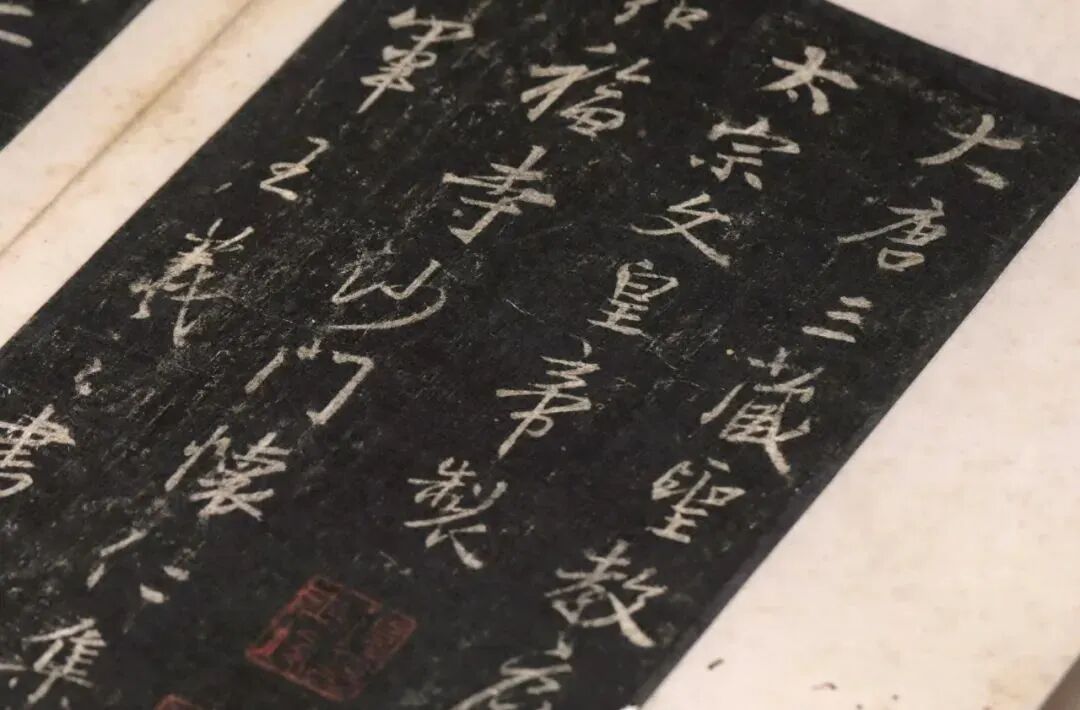 大唐三藏聖教序
太宗文皇帝製
弘福寺沙門懷仁集
軍王羲之書